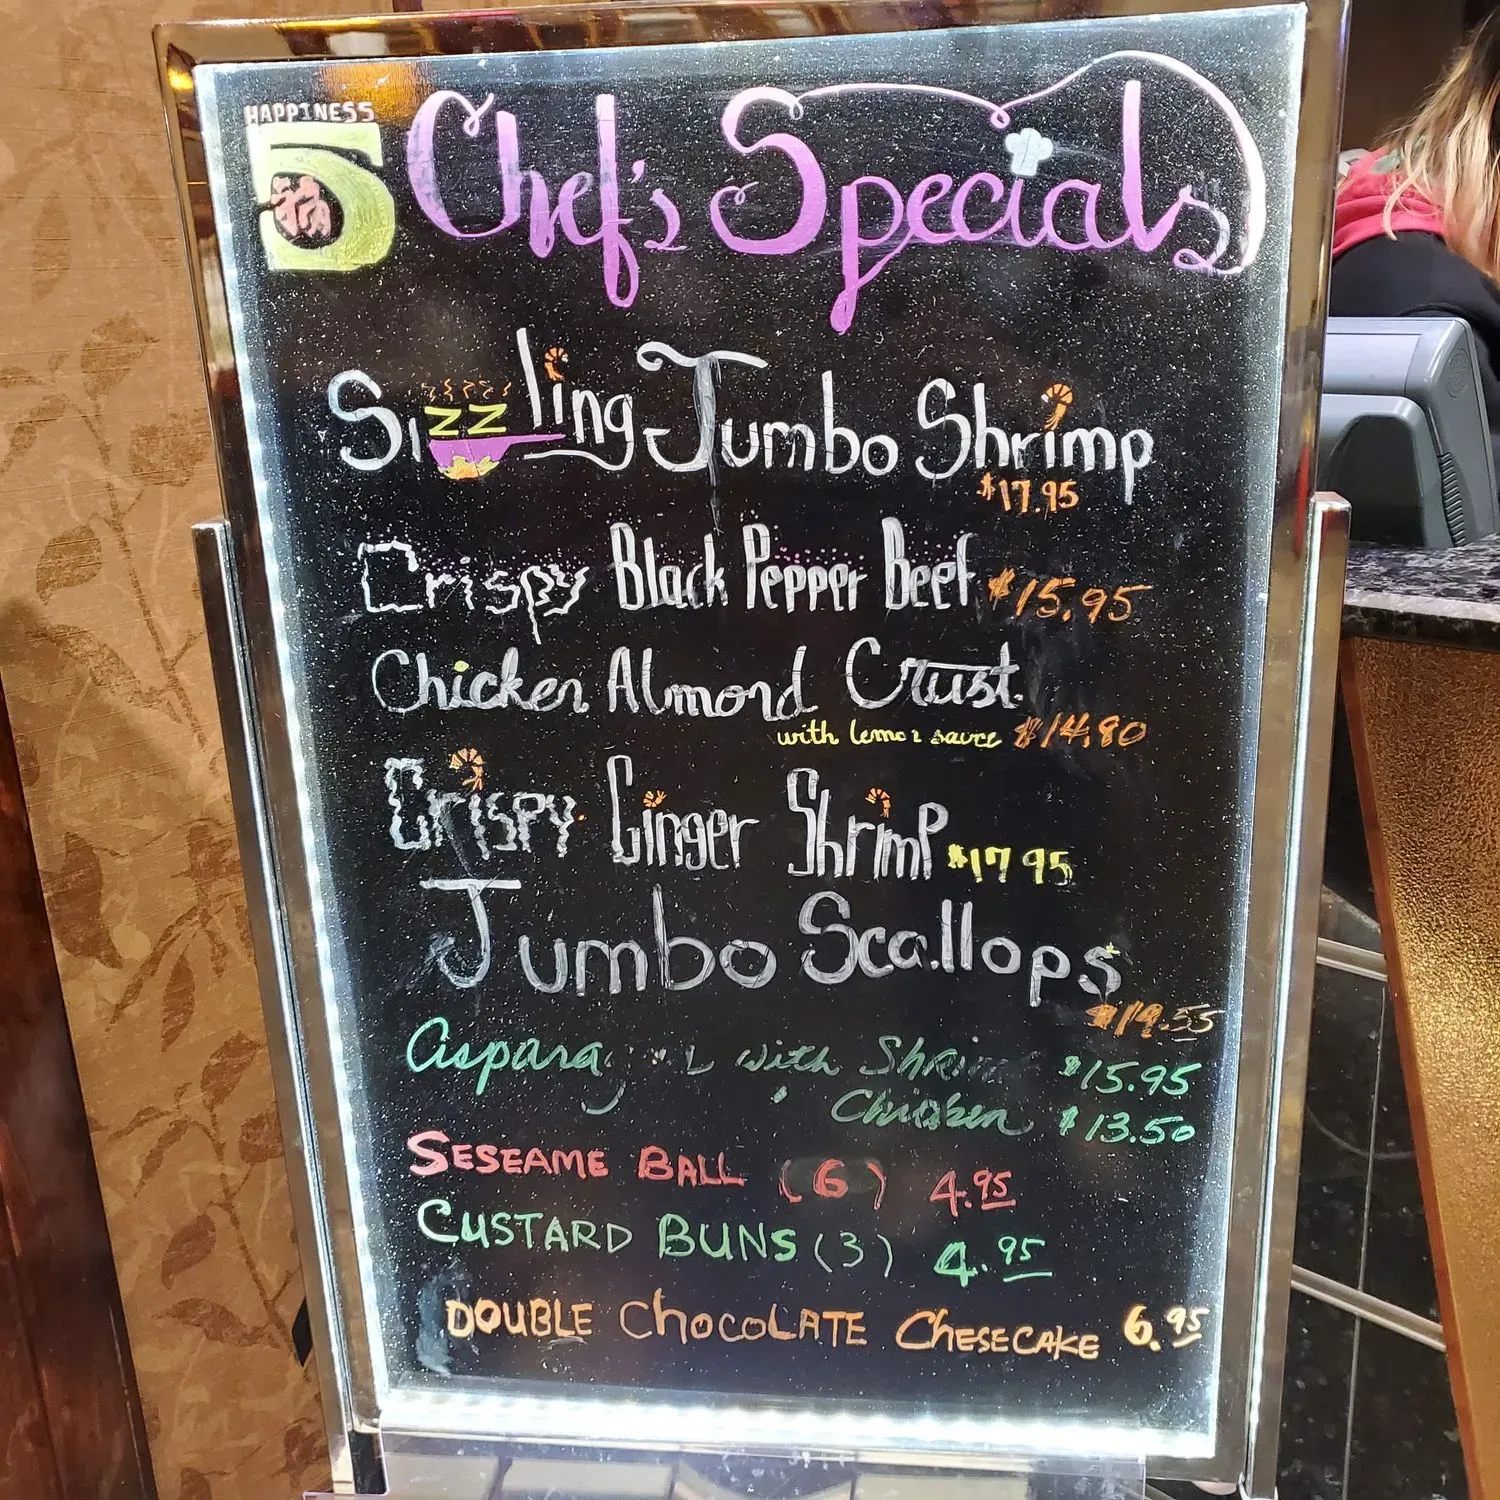 HAPPINESS
5
福
Chef's Specials
Sizzling Jumbo Shrimp
$17.95
Crispy Black Pepper Beef $15.95
Chicken Almond Crust
with lemon sauce $14.80
Crispy Ginger Shrimp $17.95
Jumbo Scallops
with Shrimp $15.95
Chicken $13.50
SESEAME BALL (6) 4.95
CUSTARD BUNS (3) 4.95
DOUBLE CHOCOLATE CHESECAKE 6.95